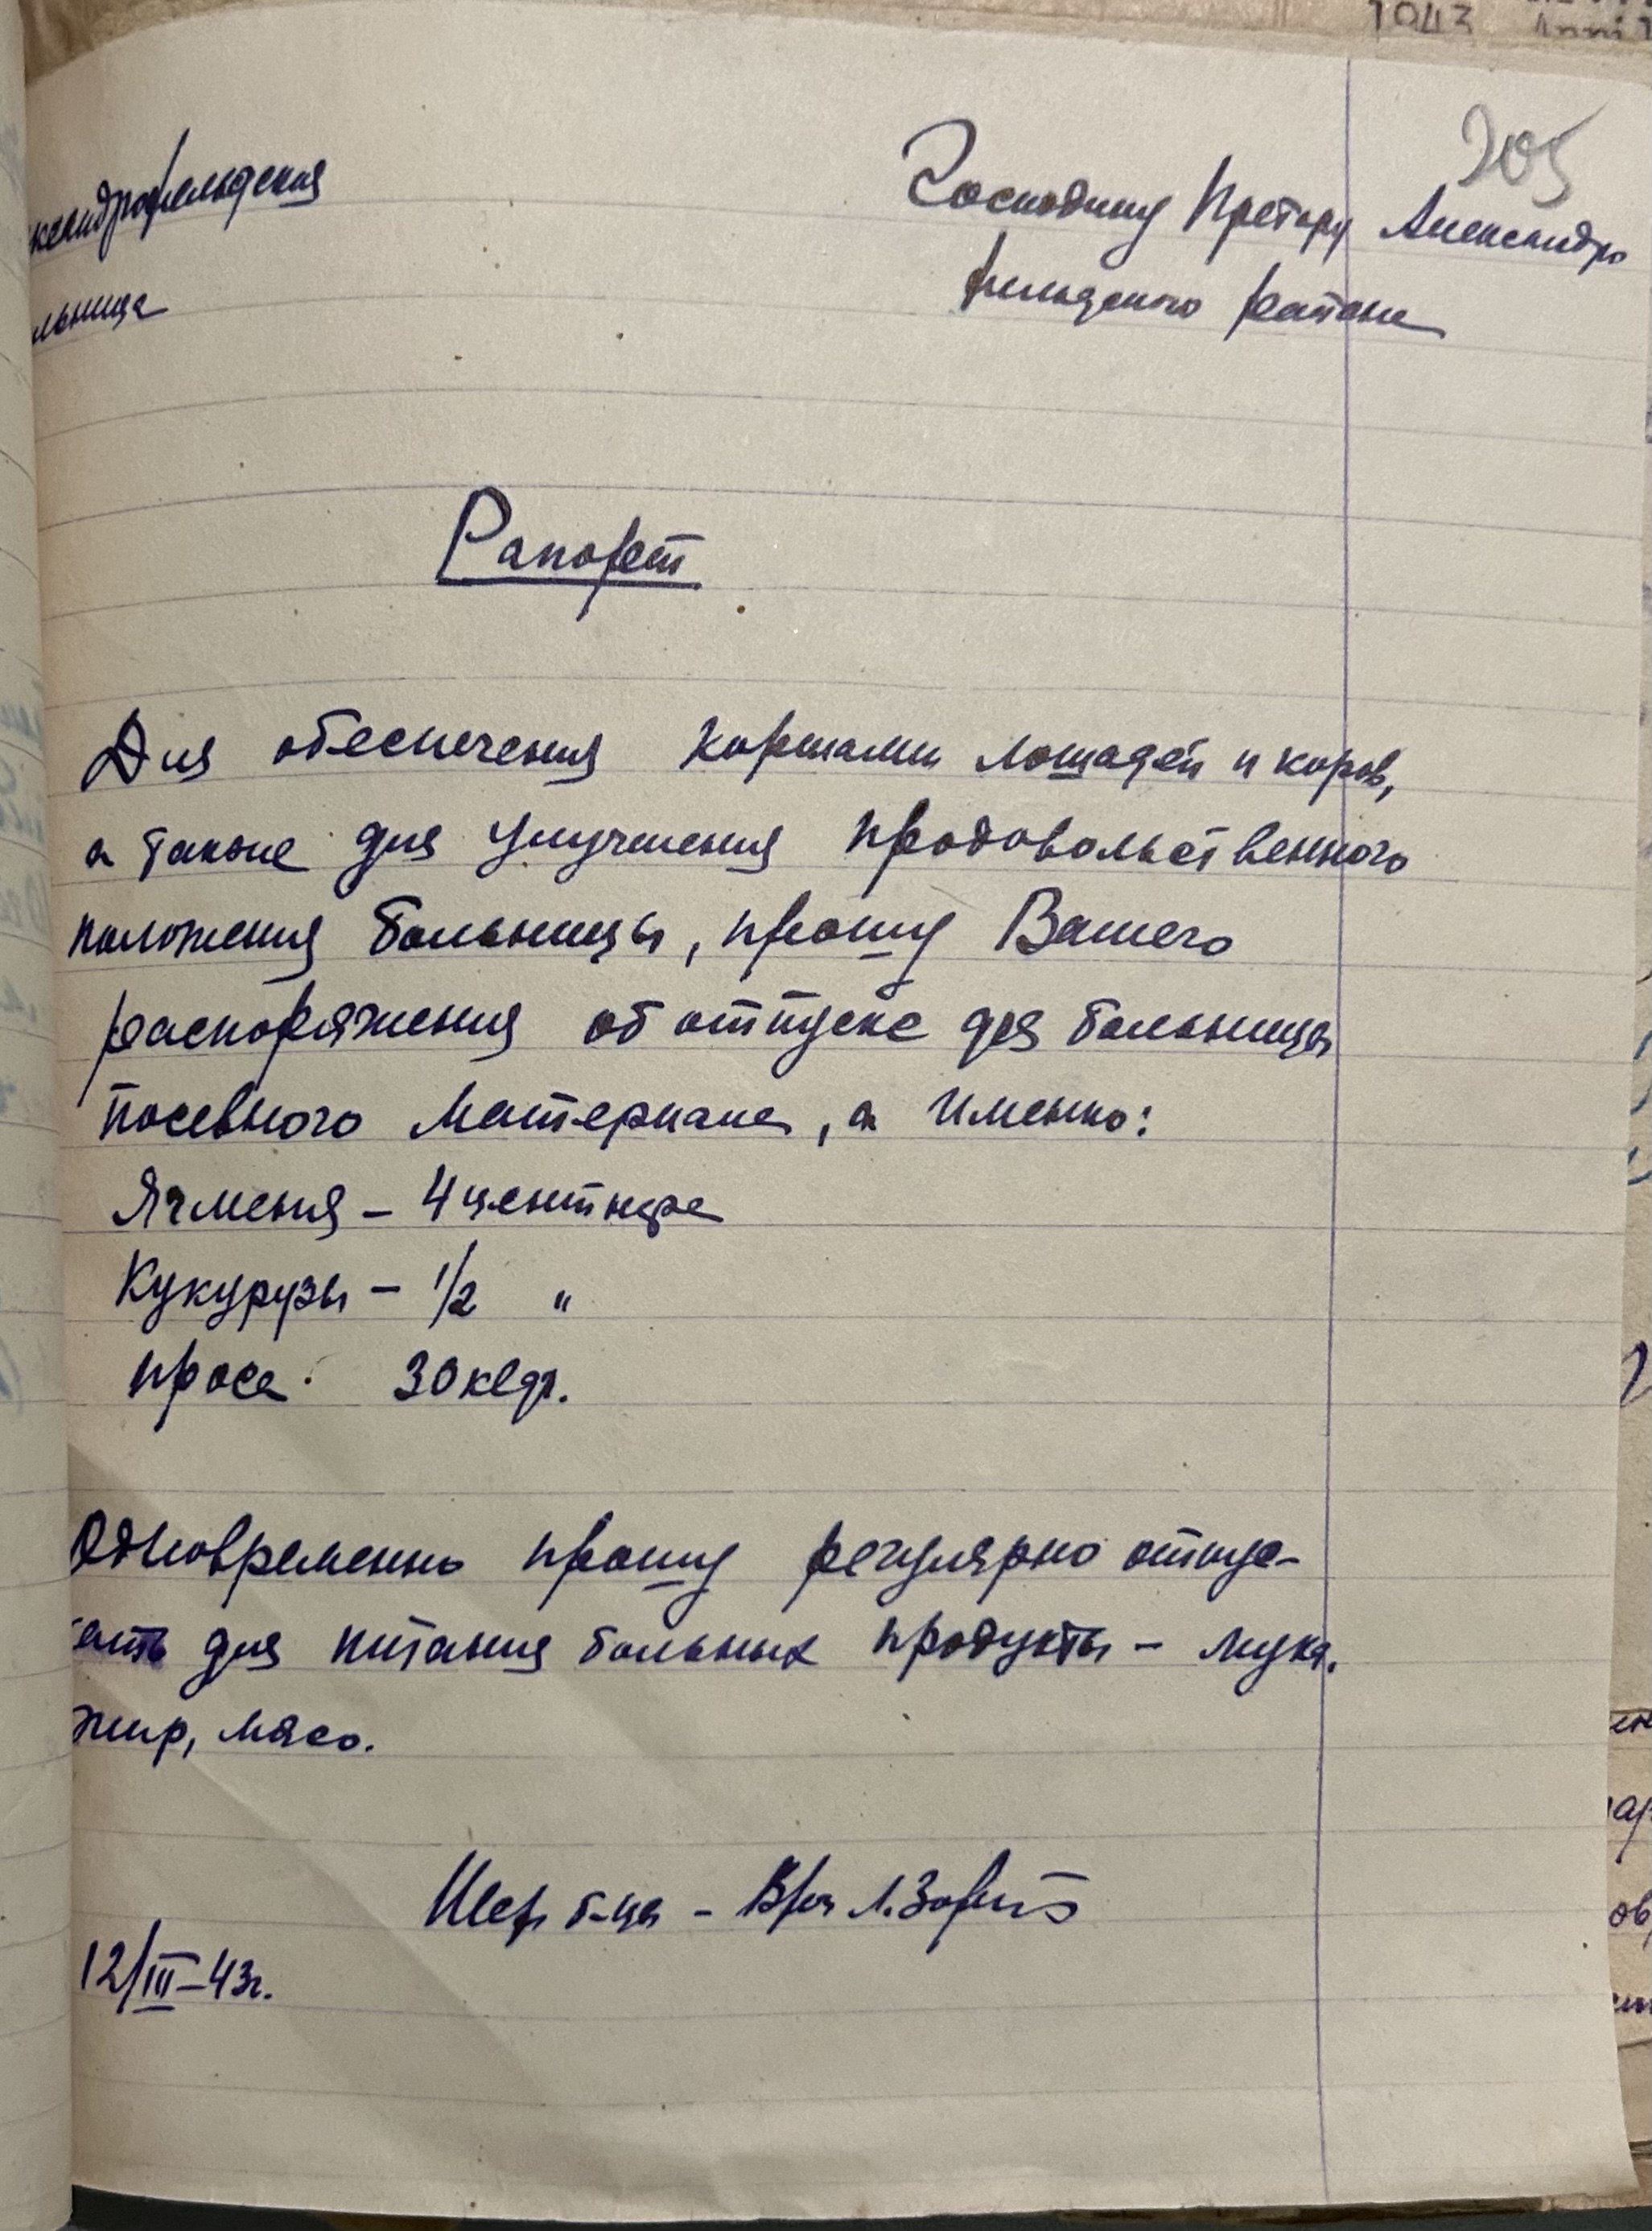 1943
205
ксандрофельдская
льница
Господину Претору Александро
фельдского района
Рапорт
Для обеспечения кормами лошадей и коров,
а также для улучшения продовольственного
положения больницы, прошу Вашего
распоряжения об отпуске для больницы
посевного материала, а именно:
Ячменя – 4 центнера
Кукурузы – 1/2 "
проса 30 клгр.
Одновременно прошу регулярно отпус-
кать для питания больных продукты – мука,
жир, мясо.
Шеф б-цы – Врач Л.
12/III–43г.